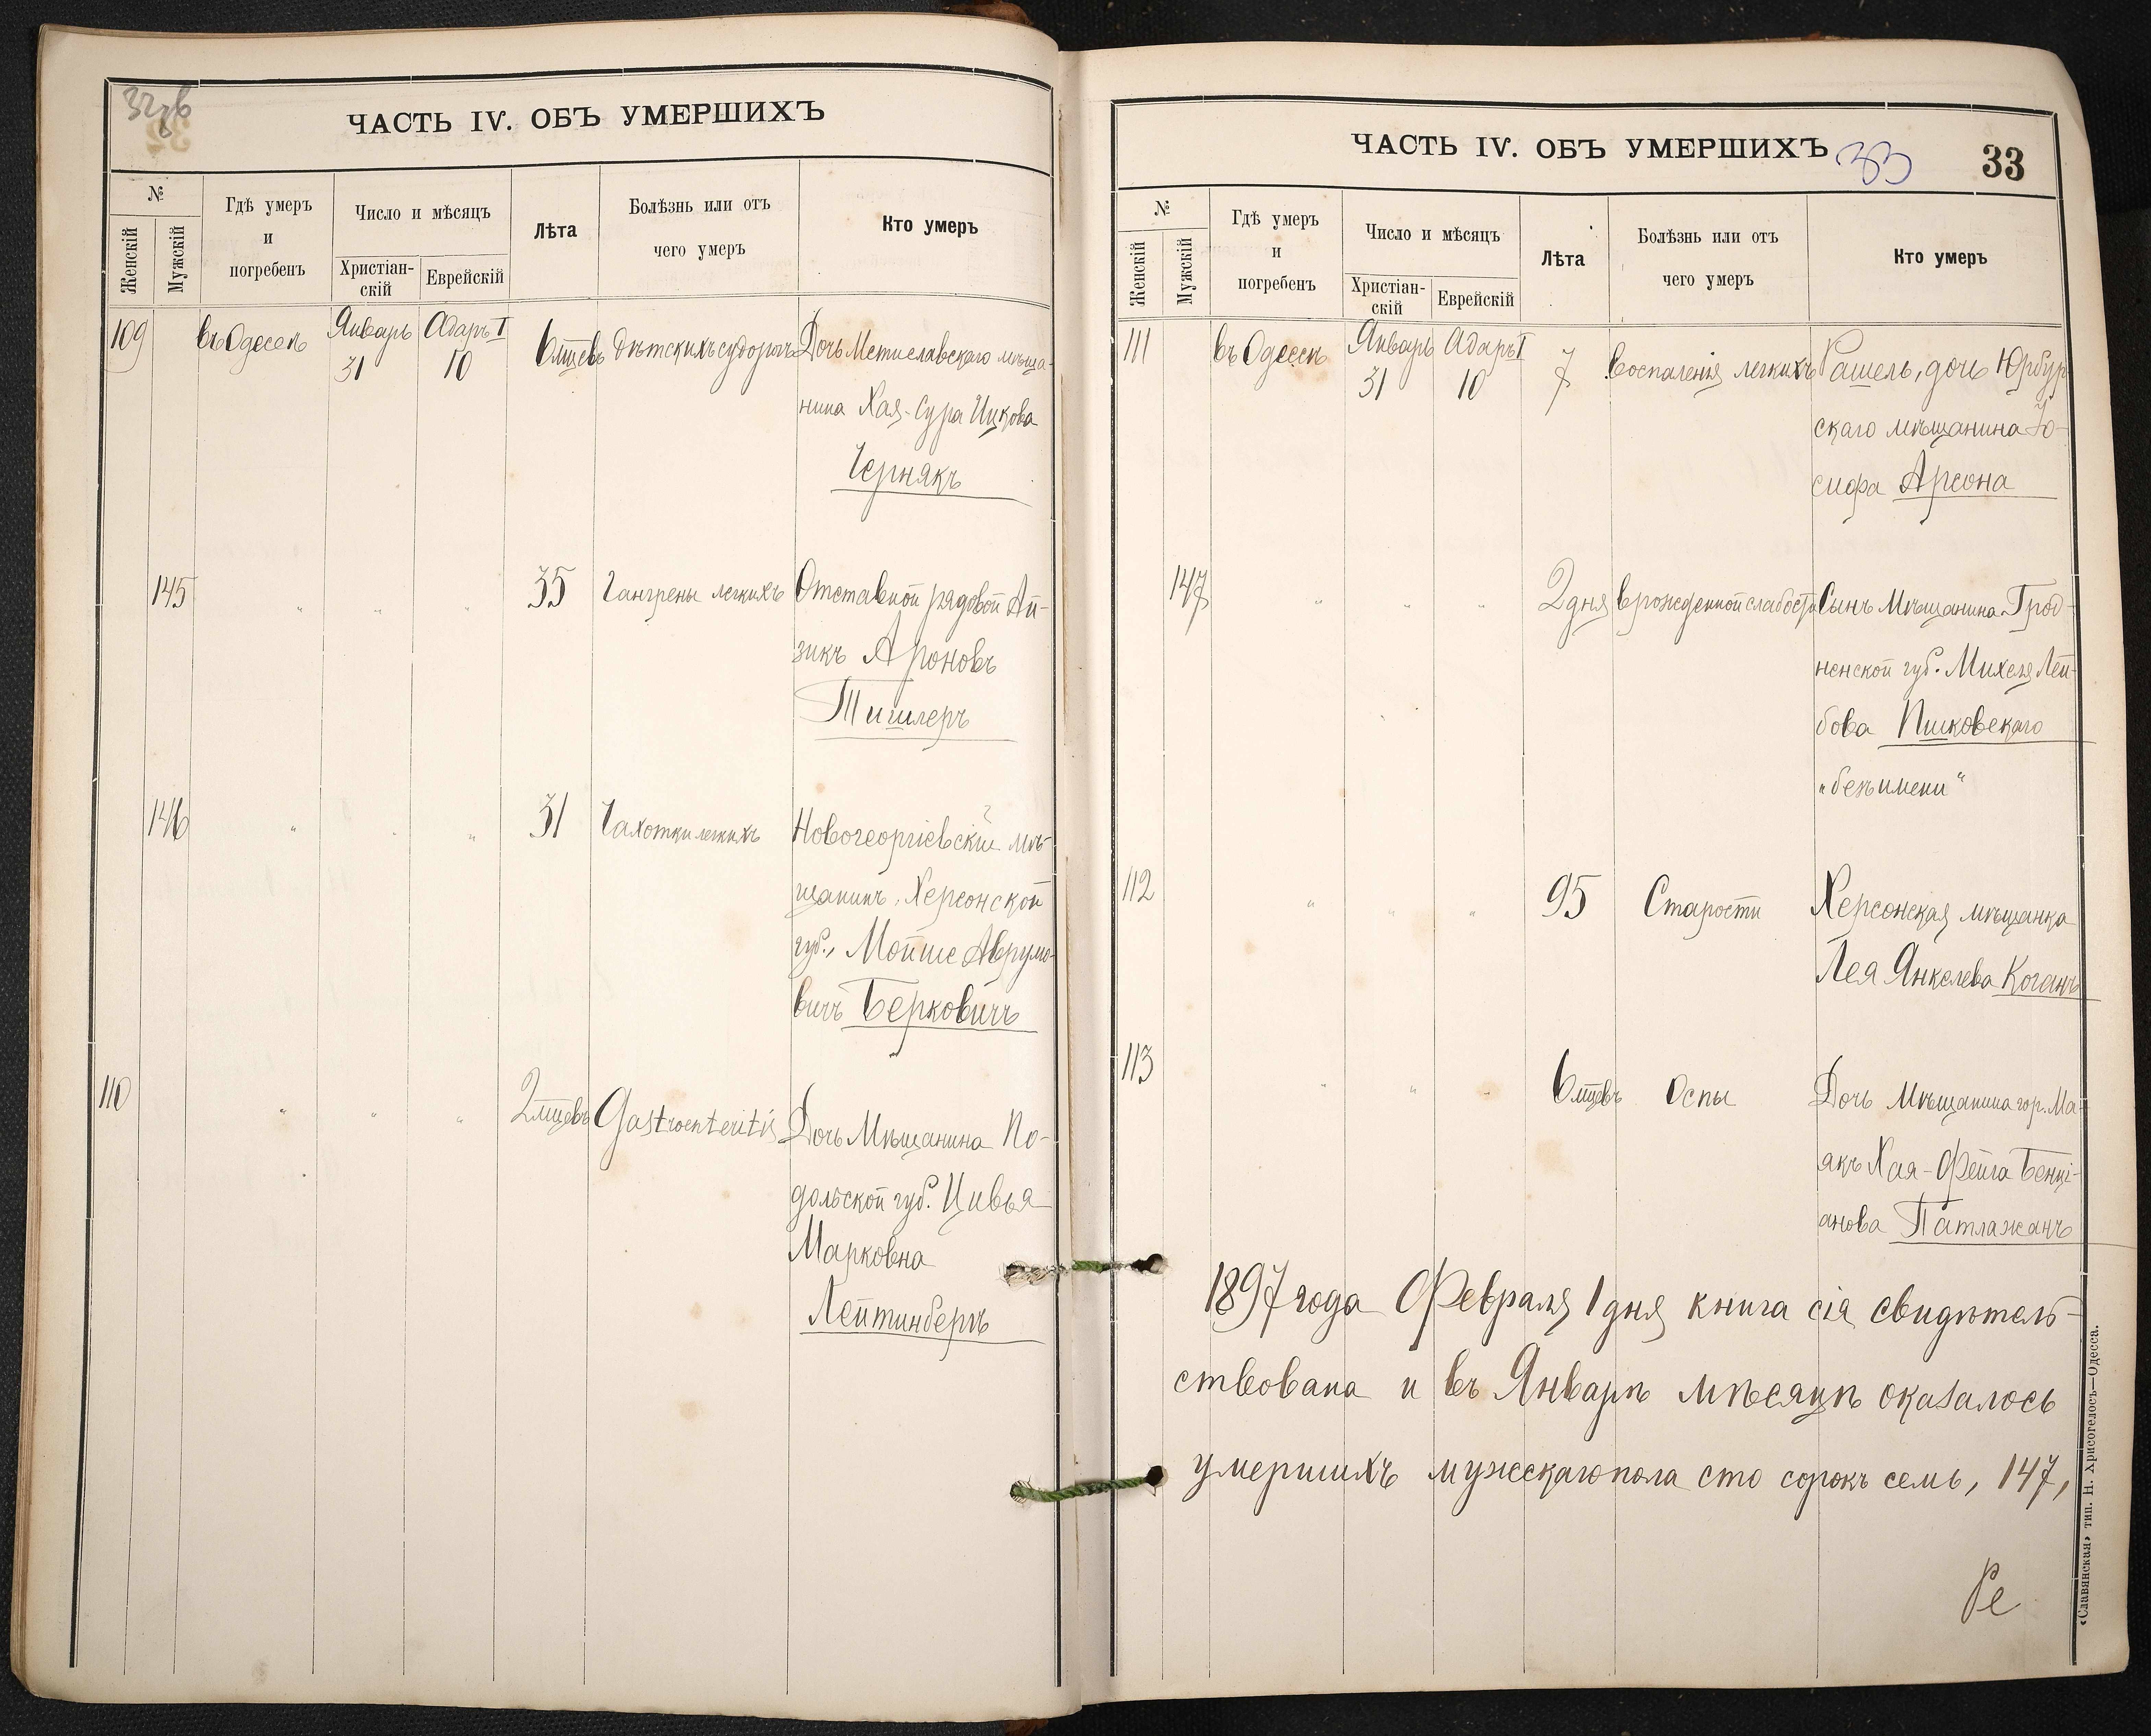 32об
ЧАСТЬ IV. ОБЪ УМЕРШИХЪ
№
Женскій
Мужскій
Гдѣ умеръ
и
погребенъ
Число и мѣсяцъ
Христіан-
скій
Еврейскій
Лѣта
Болѣзнь или отъ
чего умеръ
Кто умеръ
109 въ Одессѣ Январь Адаръ I 6 мцевъ дѣтскихъ судорогъ Дочь Мстиславскаго мѣща-
31 10
нина Хая-Сура Ицкова
Чернякъ
145 " " " 35 Гангрены легкихъ Отставной рядовой Ай-
зикъ Ароновъ
Тишлеръ
146 " " " 31 Чахотки легкихъ Новогеоргіевскій мѣ-
щанинъ, Херсонской
губ., Мойше Аврумо-
вичъ Берковичъ
110 " " " 2 мцевъ Gastroenteritis Дочь Мѣщанина По-
дольской губ. Цивья
Марковна
Лейтинбергъ
ЧАСТЬ IV. ОБЪ УМЕРШИХЪ 33 33
№
Женскій
Мужскій
Гдѣ умеръ
и
погребенъ
Число и мѣсяцъ
Христіан-
скій
Еврейскій
Лѣта
Болѣзнь или отъ
чего умеръ
Кто умеръ
111 въ Одессѣ Январь Адаръ I 7 воспаленія легкихъ Рашель, дочь Юрбур-
31 10
скаго мѣщанина Іо-
сифа Арсона
147 " " " 2 дня врожденной слабости Сынъ Мѣщанина Грод-
ненской губ. Михеля Лей-
бова Пшковскаго
"безъ имени"
112 " " " 95 Старости Херсонская мѣщанка
Лея Янкелева Коганъ
113 " " " 6 мцевъ Оспы Дочь Мѣщанина гор. Ма-
якъ Хая-Фейга Бенці-
анова Патлажанъ
1897 года Февраля 1 дня книга сія свидѣтель-
ствована и въ Январѣ мѣсяцѣ оказалось
умершихъ мужескаго пола сто сорокъ семь, 147,
Ре
«Славянская» тип. Н. Хрисогелосъ—Одесса.